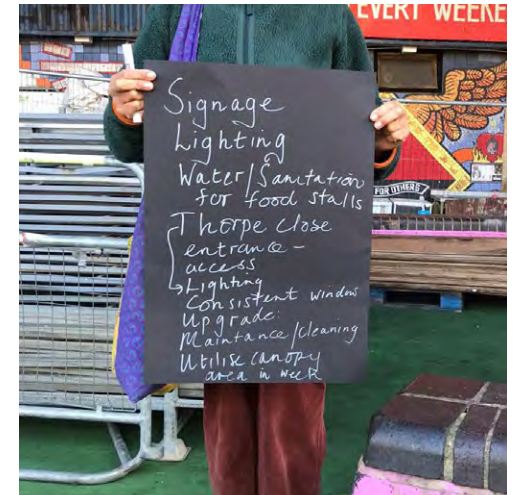 EVERY WEEKE
FOR OTHERS
Signage
Lighting
Water/Sanitation
for food stalls
Thorpe Close
entrance -
access
Lighting
Consistent window
upgrade:
Maintance/cleaning
Utilise canopy
area in week